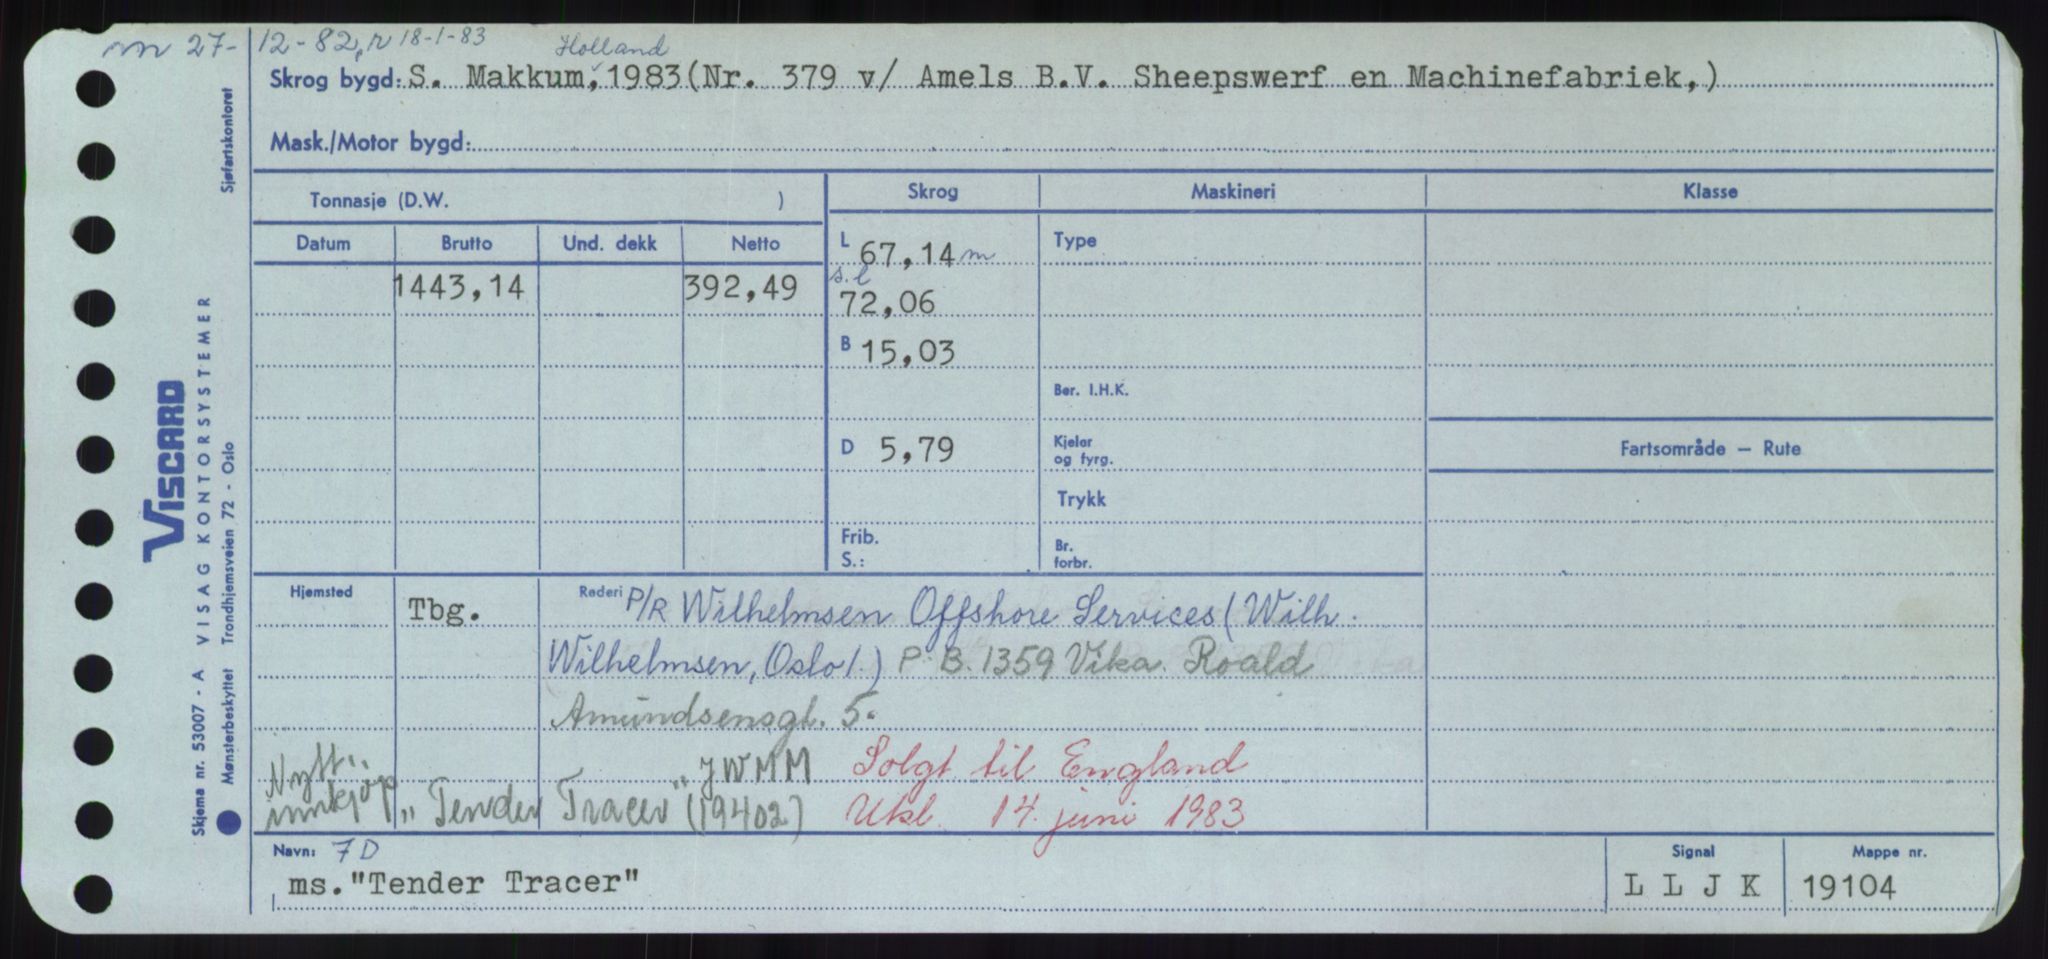 m 27-12-82, r 18-1-83 Holland
Skrog bygd: S. Makkum, 1983(Nr. 379 v/ Amels B.V. Sheepswerf en Machinefabriek,)
Mask./Motor bygd:
Tonnasje (D.W. )
Skrog
Maskineri
Klasse
Datum
Brutto
Und. dekk
Netto
1443,14
392,49
L 67,14 m
s.l
72,06
B 15,03
D 5,79
Frib.
S.:
Type
Ber. I.H.K.
Kjeler
og fyrg.
Trykk
Br.
forbr.
Fartsområde — Rute
Hjemsted
Tbg.
Rederi P/R Wilhelmsen Offshore Services (Wilh.
Wilhelmsen, Oslo 1.) P. B. 1359 Vika. Roald
Amundsensgt. 5.
Nytt
innkjøp
"Tender Tracer" JWMM
(19402)
Solgt til England
Utsl. 14. juni 1983
Navn: 7D
ms."Tender Tracer"
Signal
L L J K
Mappe nr.
19104
Sjøfartskontoret
VISCARD
VISAG KONTORSYSTEMER
Trondhjemsveien 72 - Oslo
Skjema nr. 53007 - A
Mønsterbeskyttet